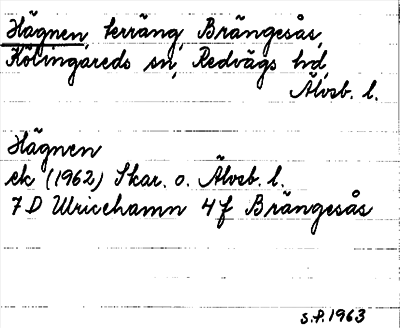 Hägnen, terräng, Brängesås,
Kölingareds sn, Redvägs hd,
Älvsb. l.
Hägnen
ek (1962) Skar. o. Älvsb. l.
7 D Ulricehamn 4f Brängesås
S.P. 1963